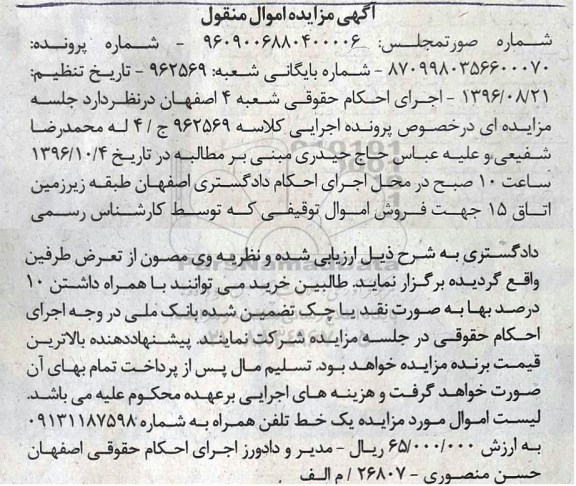 آگهی مزایده اموال منقول
شماره صورتمجلس: ۹۶۰۹۰۰۶۸۸۰۴۰۰۰۰۶ - شماره پرونده:
۸۷۰۹۹۸۰۳۵۶۶۰۰۰۷۰ - شماره بایگانی شعبه: ۹۶۲۵۶۹ - تاریخ تنظیم:
۱۳۹۶/۰۸/۲۱ - اجرای احکام حقوقی شعبه ۴ اصفهان درنظردارد جلسه
مزایده ای درخصوص پرونده اجرایی کلاسه ۹۶۲۵۶۹ ج/۴ له محمدرضا
شفیعی،و علیه عباس حاج حیدری مبنی بر مطالبه در تاریخ ۱۳۹۶/۱۰/۴
ساعت ۱۰ صبح در محل اجرای احکام دادگستری اصفهان طبقه زیرزمین
اتاق ۱۵ جهت فروش اموال توقیفی که توسط کارشناس رسمی
دادگستری به شرح ذیل ارزیابی شده و نظریه وی مصون از تعرض طرفین
واقع گردیده برگزار نماید. طالبین خرید می توانند با همراه داشتن ۱۰
درصد بها به صورت نقد یا چک تضمین شده بانک ملی در وجه اجرای
احکام حقوقی در جلسه مزایده شرکت نمایند. پیشنهاددهنده بالاترین
قیمت برنده مزایده خواهد بود. تسلیم مال پس از پرداخت تمام بهای آن
صورت خواهد گرفت و هزینه های اجرایی برعهده محکوم علیه می باشد.
لیست اموال مورد مزایده یک خط تلفن همراه به شماره ۰۹۱۳۱۱۸۷۵۹۸
به ارزش ۶۵/۰۰۰/۰۰۰ ریال - مدیر و دادورز اجرای احکام حقوقی اصفهان
حسن منصوری - ۲۶۸۰۷ / م الف